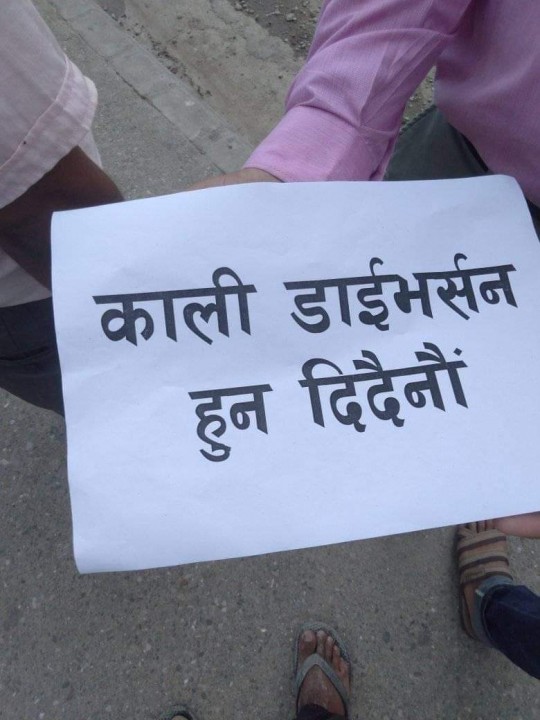 काली डाईभर्सन
हुन दिदैनौं